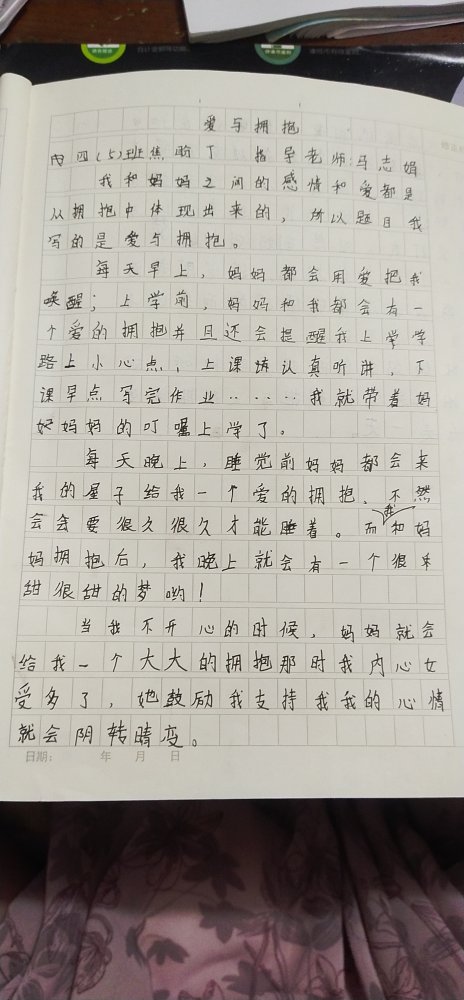 爱与拥抱
内四(5)班焦盼丁 指导老师:马志娟
我和妈妈之间的感情和爱都是
从拥抱中体现出来的，所以题目我
写的是爱与拥抱。
每天早上，妈妈都会用爱把我
唤醒；上学前，妈妈和我都会有一
个爱的拥抱并且还会提醒我上学学
路上小心点，上课认真听讲，下
课早点写完作业·····我就带着妈
妈妈的叮嘱上学了。
每天晚上，睡觉前妈妈都会来
我的屋子给我一个爱的拥抱，不然
会会要很久很久才能睡着。而我和妈
妈拥抱后，我晚上就会有一个很
甜很甜的梦哟！
当我不开心的时候，妈妈就会
给我一个大大的拥抱那时我内心女
受多了，她鼓励我支持我我的心情
就会阴转晴变。
日期： 年 月 日